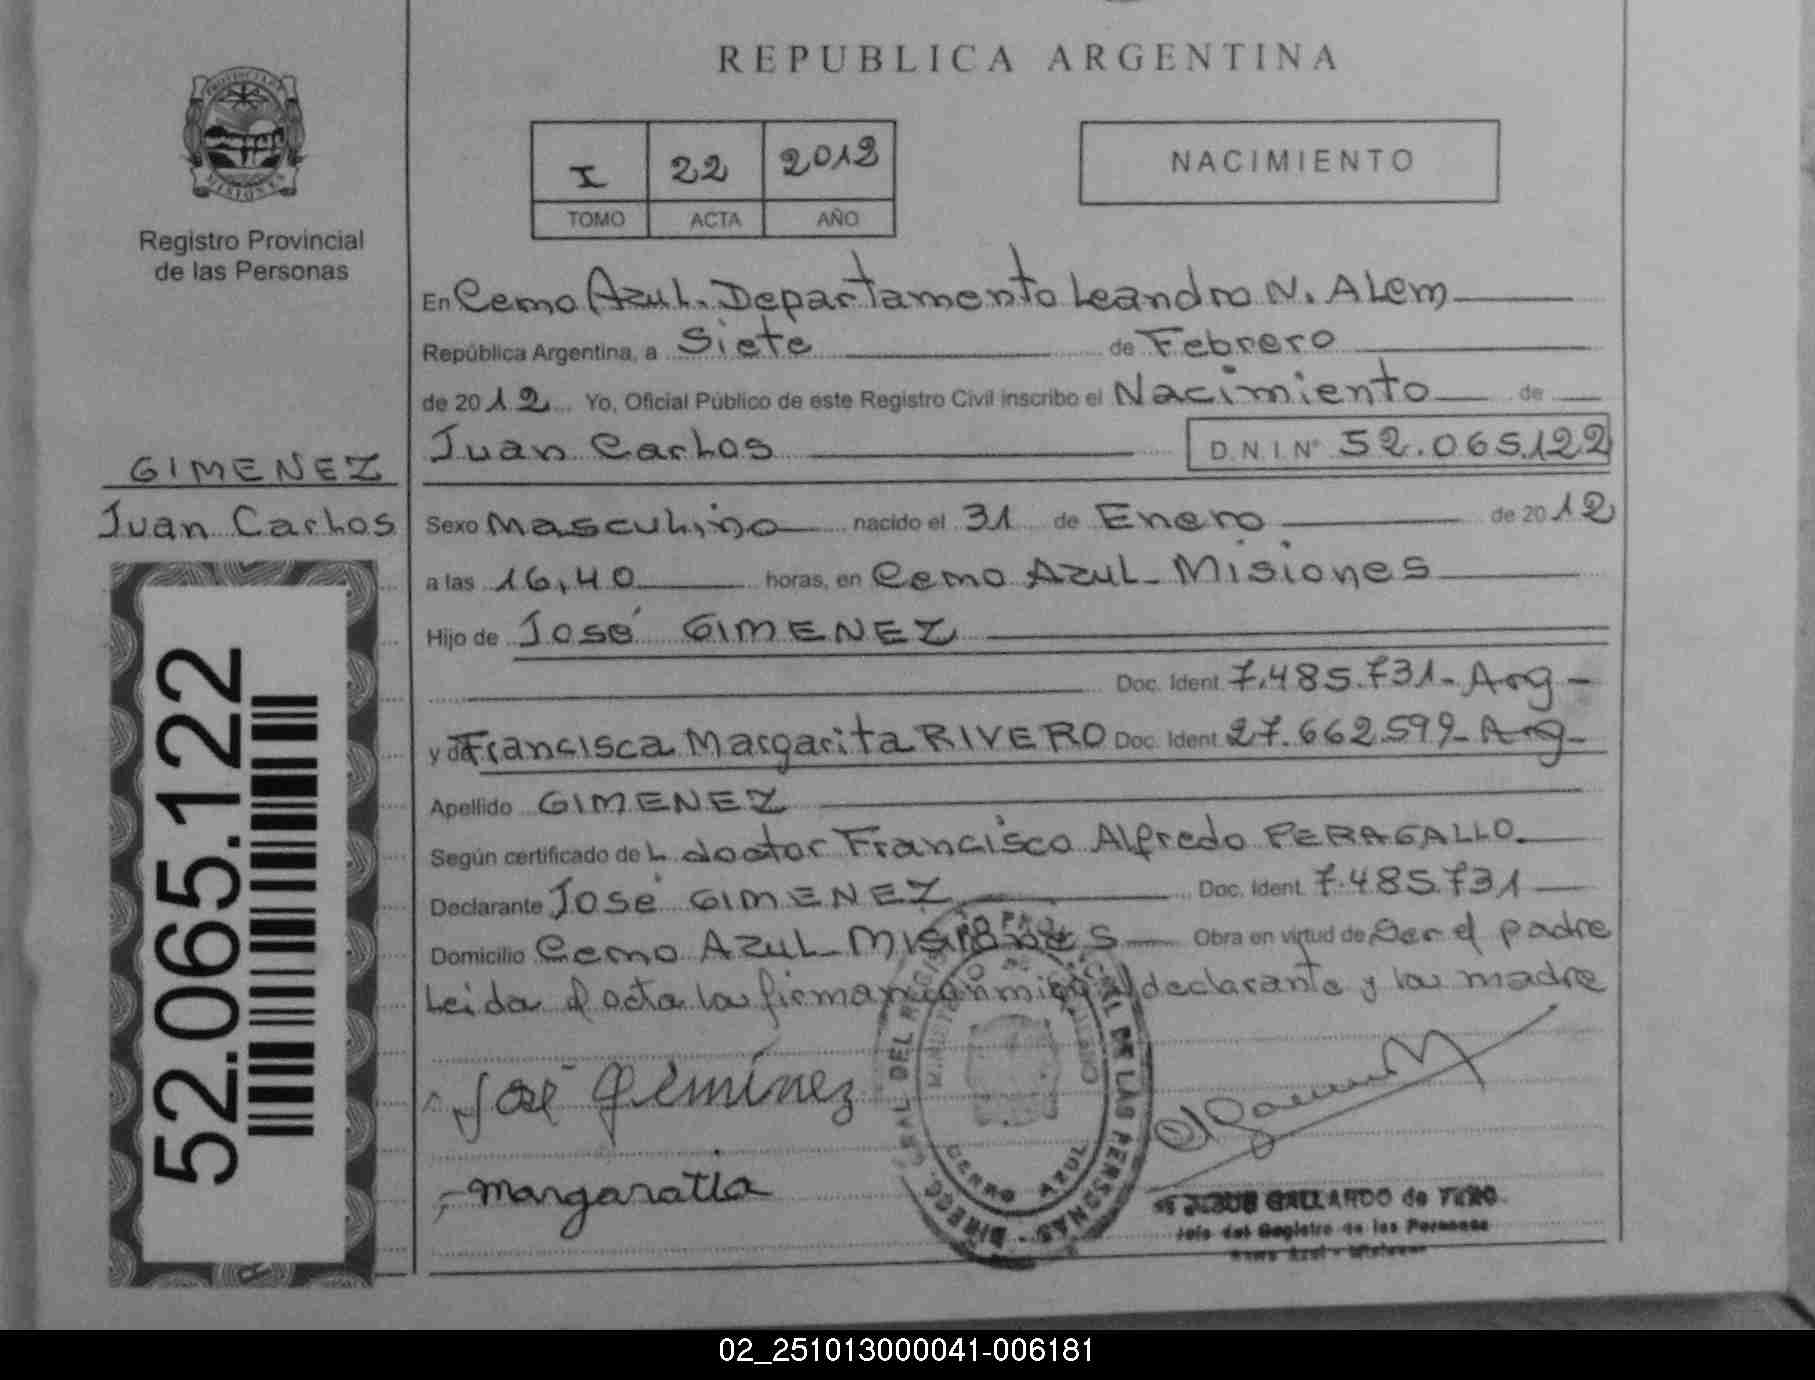 REPUBLICA ARGENTINA
PROVINCIA DE MISIONES
Registro Provincial
de las Personas
I 22 2012
TOMO ACTA AÑO
NACIMIENTO
En Cerro Azul. Departamento Leandro N. Alem
República Argentina, a Siete de Febrero
de 2012 Yo, Oficial Público de este Registro Civil inscribo el Nacimiento de
Juan Carlos D.N.I. Nº 52.065.122
GIMENEZ
Juan Carlos
Sexo Masculino nacido el 31 de Enero de 2012
a las 16,40 horas, en Cerro Azul - Misiones
Hijo de José GIMENEZ
Doc. Ident 7.485.731 - Arg -
y de Francisca Margarita RIVERO Doc. Ident 27.662.599 - Arg -
Apellido GIMENEZ
Según certificado del doctor Francisco Alfredo PERAGALLO.
Declarante José GIMENEZ Doc. Ident. 7.485.731
Domicilio Cerro Azul - Misiones Obra en virtud de Ser el padre
Leida el acta la firman conmigo el declarante y la madre
José Geminez
Margaratia
52.065.122
DIREC. GRAL DEL REGIST. PROVINCIAL DE LAS PERSONAS
MINISTERIO DE GOBIERNO
CERRO AZUL
GALLARDO de
Jefe del Registro de las Personas
Cerro Azul - Misiones
02_251013000041-006181